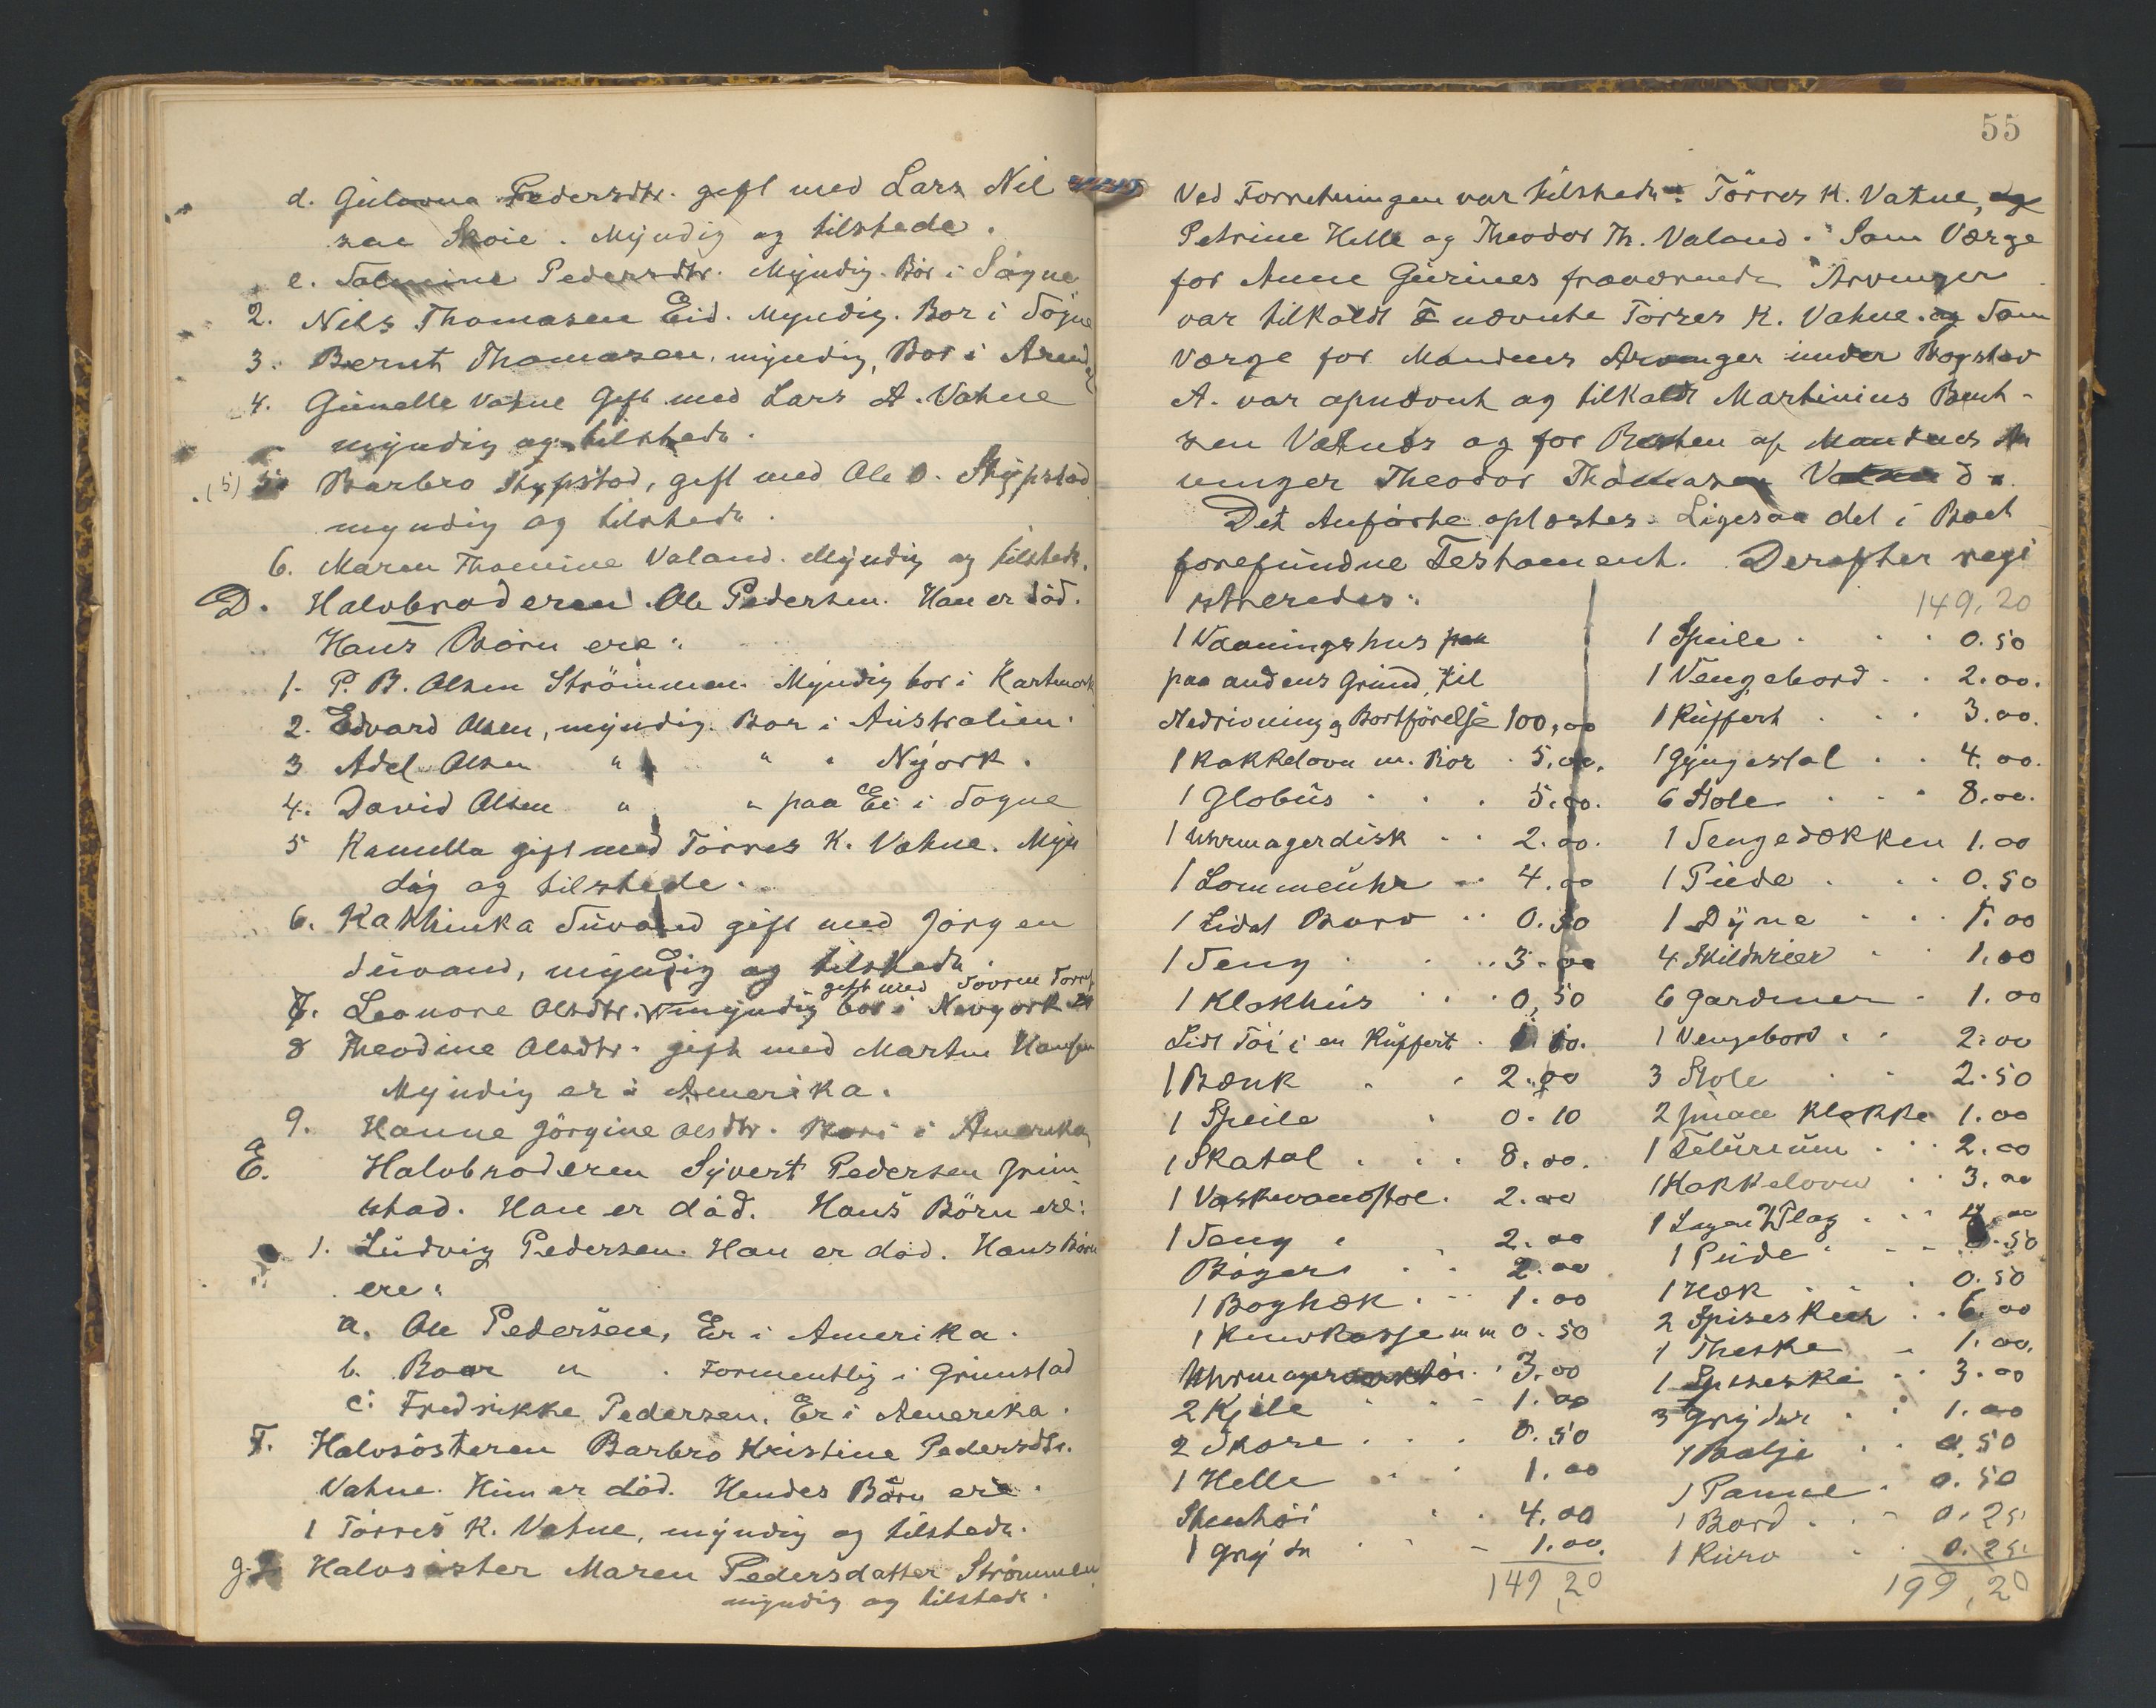 d. Gulovna Pedersdtr. gift med Lars Nil
sen Skoie. Myndig og tilstede.
e. Talmine Pedersdtr. Myndig. Bor i Søgne
2. Nils Thomasen Eid. Myndig. Bor i Søgne
3. Bernt Thomasen, myndig, Bor i Arendal
4. Gunelle Vatne Gift med Lars A. Vatne
myndig og tilstede.
(5) 5. Barbro Stypstad, gift med Ole O. Stypstad
myndig og tilstede.
6. Maren Thomine Valand. Myndig og tilstede.
D. Halvbroderen Ole Pedersen. Han er död.
Hans Börn ere:
1. P. B. Olsen Strömmen. Myndig bor i Hartmark
2. Edvard Olsen, myndig. Bor i Australien.
3 Adel Olsen " " " Nÿork.
4. David Olsen " " paa Ei i Søgne
5 Kamilla gift med Törres K. Vatne. Myn
dig og tilstede.
6. Kathinka Tuvand gift med Jörgen
Tuvand, myndig og tilstede.
gift med Tovrin Torres
7. Leonore Olsdtr. myndig bor i Newyork
8 Theodine Olsdtr. gift med Martin Hansen
Myndig er i Amerika.
9. Hanne Jörgine Olsdtr. Bor i Amerika
E. Halvbroderen Syvert Pedersen Grim
stad. Han er död. Hans Börn ere:
1. Ludvig Pedersen. Han er död. Hans Börn
ere:
a. Ole Pedersen, Er i Amerika.
b. Boar " . Formentlig i Grimstad
c. Fredrikke Pedersen. Er i Amerika.
F. Halvsösteren Barbro Kristine Pedersdtr.
Vatne. Hun er död. Hendes Börn ere.
1 Törres K. Vatne, myndig og tilstede.
g. Halvsöster Maren Pedersdatter Strömmen
myndig og tilstede.
55
Ved Forretningen var tilstede: Törres K. Vatne, og
Petrine Helle og Theodor Th. Valand. Som Værge
for Anne Gurines fraværende Arvinger
var tilkaldt nævnte Törres K. Vatne. og Som
Værge for Mandens Arvinger under Bogstav
A. var opnævnt og tilkaldt Martinius Bent-
sen Vatnes og for Resten af Mandens Ar
vinger Theodor Thomasen
Det Anförte oplæstes. Ligesaa det i Boet
forefundne Testament. Derefter regi
streredes:
1 Vaaningshus paa
paa andens Grund, til
Nedrivning og Bortförelse 100,00
1 Kakkelovn m. Rör . 5.00.
1 Globus . . . 5.00.
1 Uhrmagerdisk . . 2.00.
1 Lommeuhr . . 4.00
1 Lidet Bord . . 0.50
1 Seng . . . 3.00
1 Klokhus . . . 0,50
Lidt Töi i en Kuffert .
1 Bænk . . 2.00
1 Speile . 0.10
1 Skatol . . . 8.00.
1 Vaskevandstol. 2.00
1 Seng . . 2.00
Böger . . 2.00
1 Boghæk . . 1.00
1 Knivkasse m m 0.50
Uhrmagerværktöi . . 3.00
2 Kjele . . . 1.00
2 Skore . . . 0.50
1 Helle . . 1.00
Stentöi . . 4.00
1 Gryde . . 1.00.
149,20
149,20
1 Speile . . . 0.50
1 Vengebord . . 2.00.
1 Kuffert . . . 3.00.
1 Gyngestol . . 4.00.
6 Stole . . . 8.00.
1 Sengedækken 1.00
1 Pude . . . 0.50
1 Dÿne . . . 1.00
4 Skildrier . . 1.00
6 Gardiner . 1.00
1 Vengebord . . 2.00
3 Stole . . 2.50
2 smaae Klokke 1.00
1 Telurium . . . 2.00
1 Kakkelovn . . 3.00
1 Lagen
1 Pude . . .
1 Hæk . . . 0.50
2 Spiseskeer . . 6.00
1 Theske . 1.00.
1 Spiseske . . 3.00
3 Gryder . . 1.00
1 Balje . . 0.50
1 Panne . 0.50
1 Bord . . 0.25
1 Kurv . . 0.25.
199,20